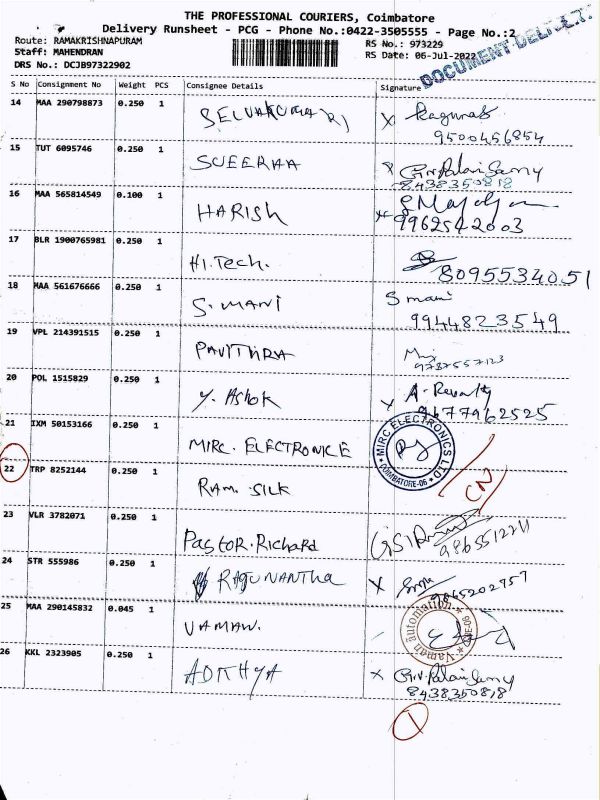 THE PROFESSIONAL COURIERS, Coimbatore
Delivery Runsheet - PCG - Phone No.:0422-3505555 - Page No.:2
Route: RAMAKRISHNAPURAM RS No.: 973229
Staff: MAHENDRAN RS Date: 06-Jul-2022
DRS No.: DCJB97322902
DOCUMENT
S No Consignment No Weight PCS Consignee Details Signature
14 MAA 290798873 0.250 1 SELVAKUMARI X
9500456854
15 TUT 6095746 0.250 1 SUEERAA X G.V.Palanisamy
8438350818
16 MAA 565814549 0.100 1 HARISH X
9962542003
17 BLR 1900765981 0.250 1 Hi.Tech.
8095534051
18 MAA 561676666 0.250 1 S.MANI S mani
9944823549
19 VPL 214391515 0.250 1 PAVITHRA
9787557123
20 POL 1515829 0.250 1 Y. Ashok X A. Revathy
9677962525
21 IXM 50153166 0.250 1 MIRC. ELECTRONICE MIRC ELECTRONICS LTD COIMBATORE-06
22 TRP 8252144 0.250 1 RAM SILK CN
23 VLR 3782071 0.250 1 Pastor.Richard
9865512211
24 STR 555986 0.250 1 RAGUNANTHA X
9865202757
25 MAA 290145832 0.045 1 VAMAN. Vaman automation
26 KKL 2323905 0.250 1 ADITHYA X G.V.Palanisamy
8438350818
1